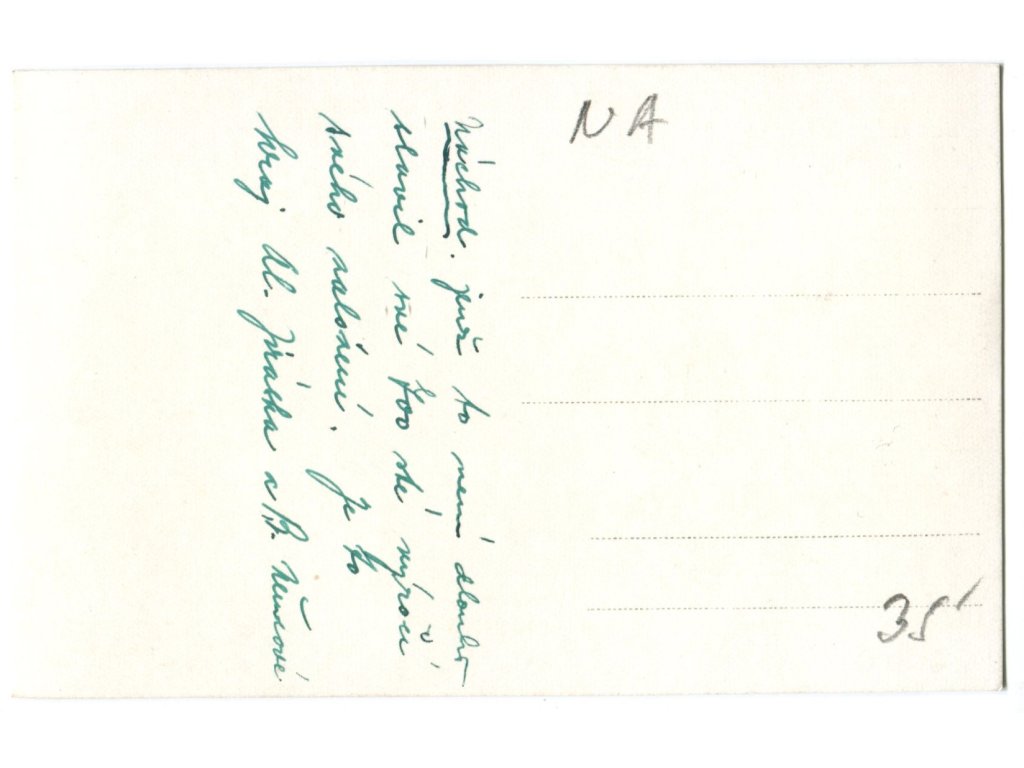 Náchod. jenž to není dlouho
slavil své 700 sté výročí
svého založení. Je to
kraj Al. Jiráska a B. Němcové
NA
35